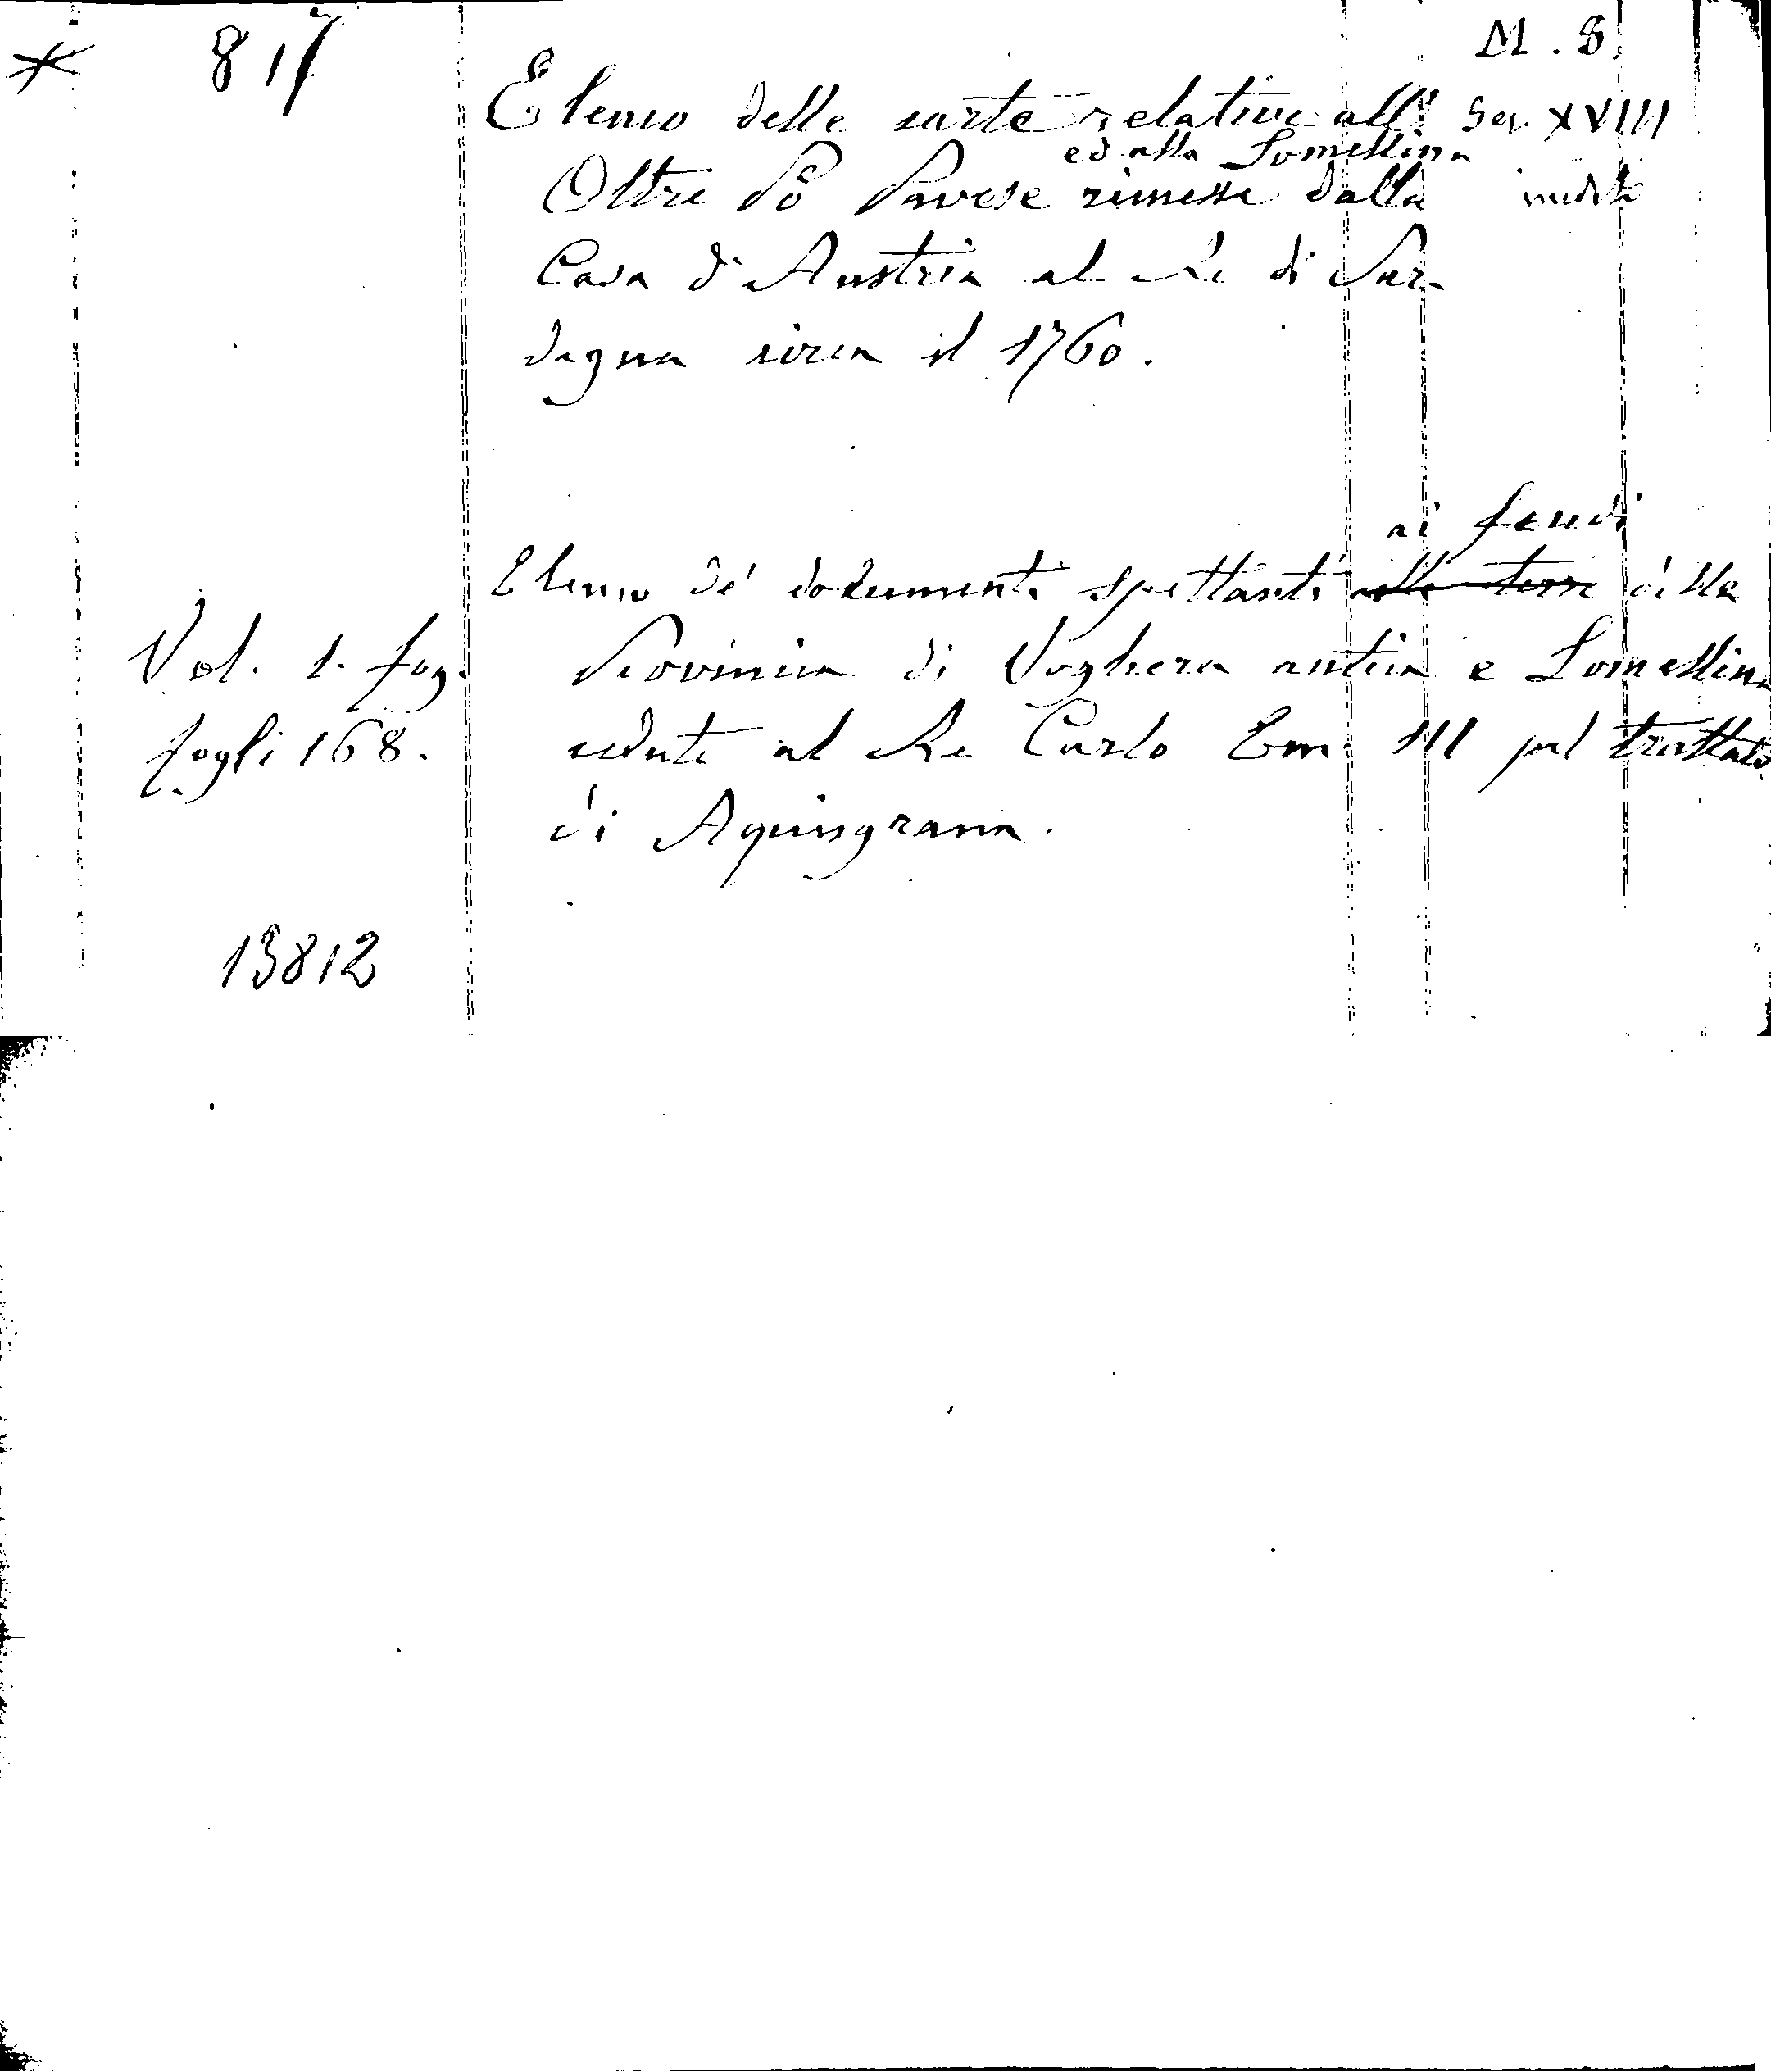 * 817
M. S.
Elenco delle carte relative all' Sec. XVIII
ed alla Lomellina
Oltre Pò Pavese rimesse dalla inedito
Casa d'Austria al Re di Sar-
degna circa il 1760.
ai feudi
Elenco de' documenti spettanti alle terre della
Vol. 1. fog. Provincia di Voghera antica e Lomellina
fogli 168. cedute al Re Carlo Em. III pel trattato
di Aquisgrana.
13812